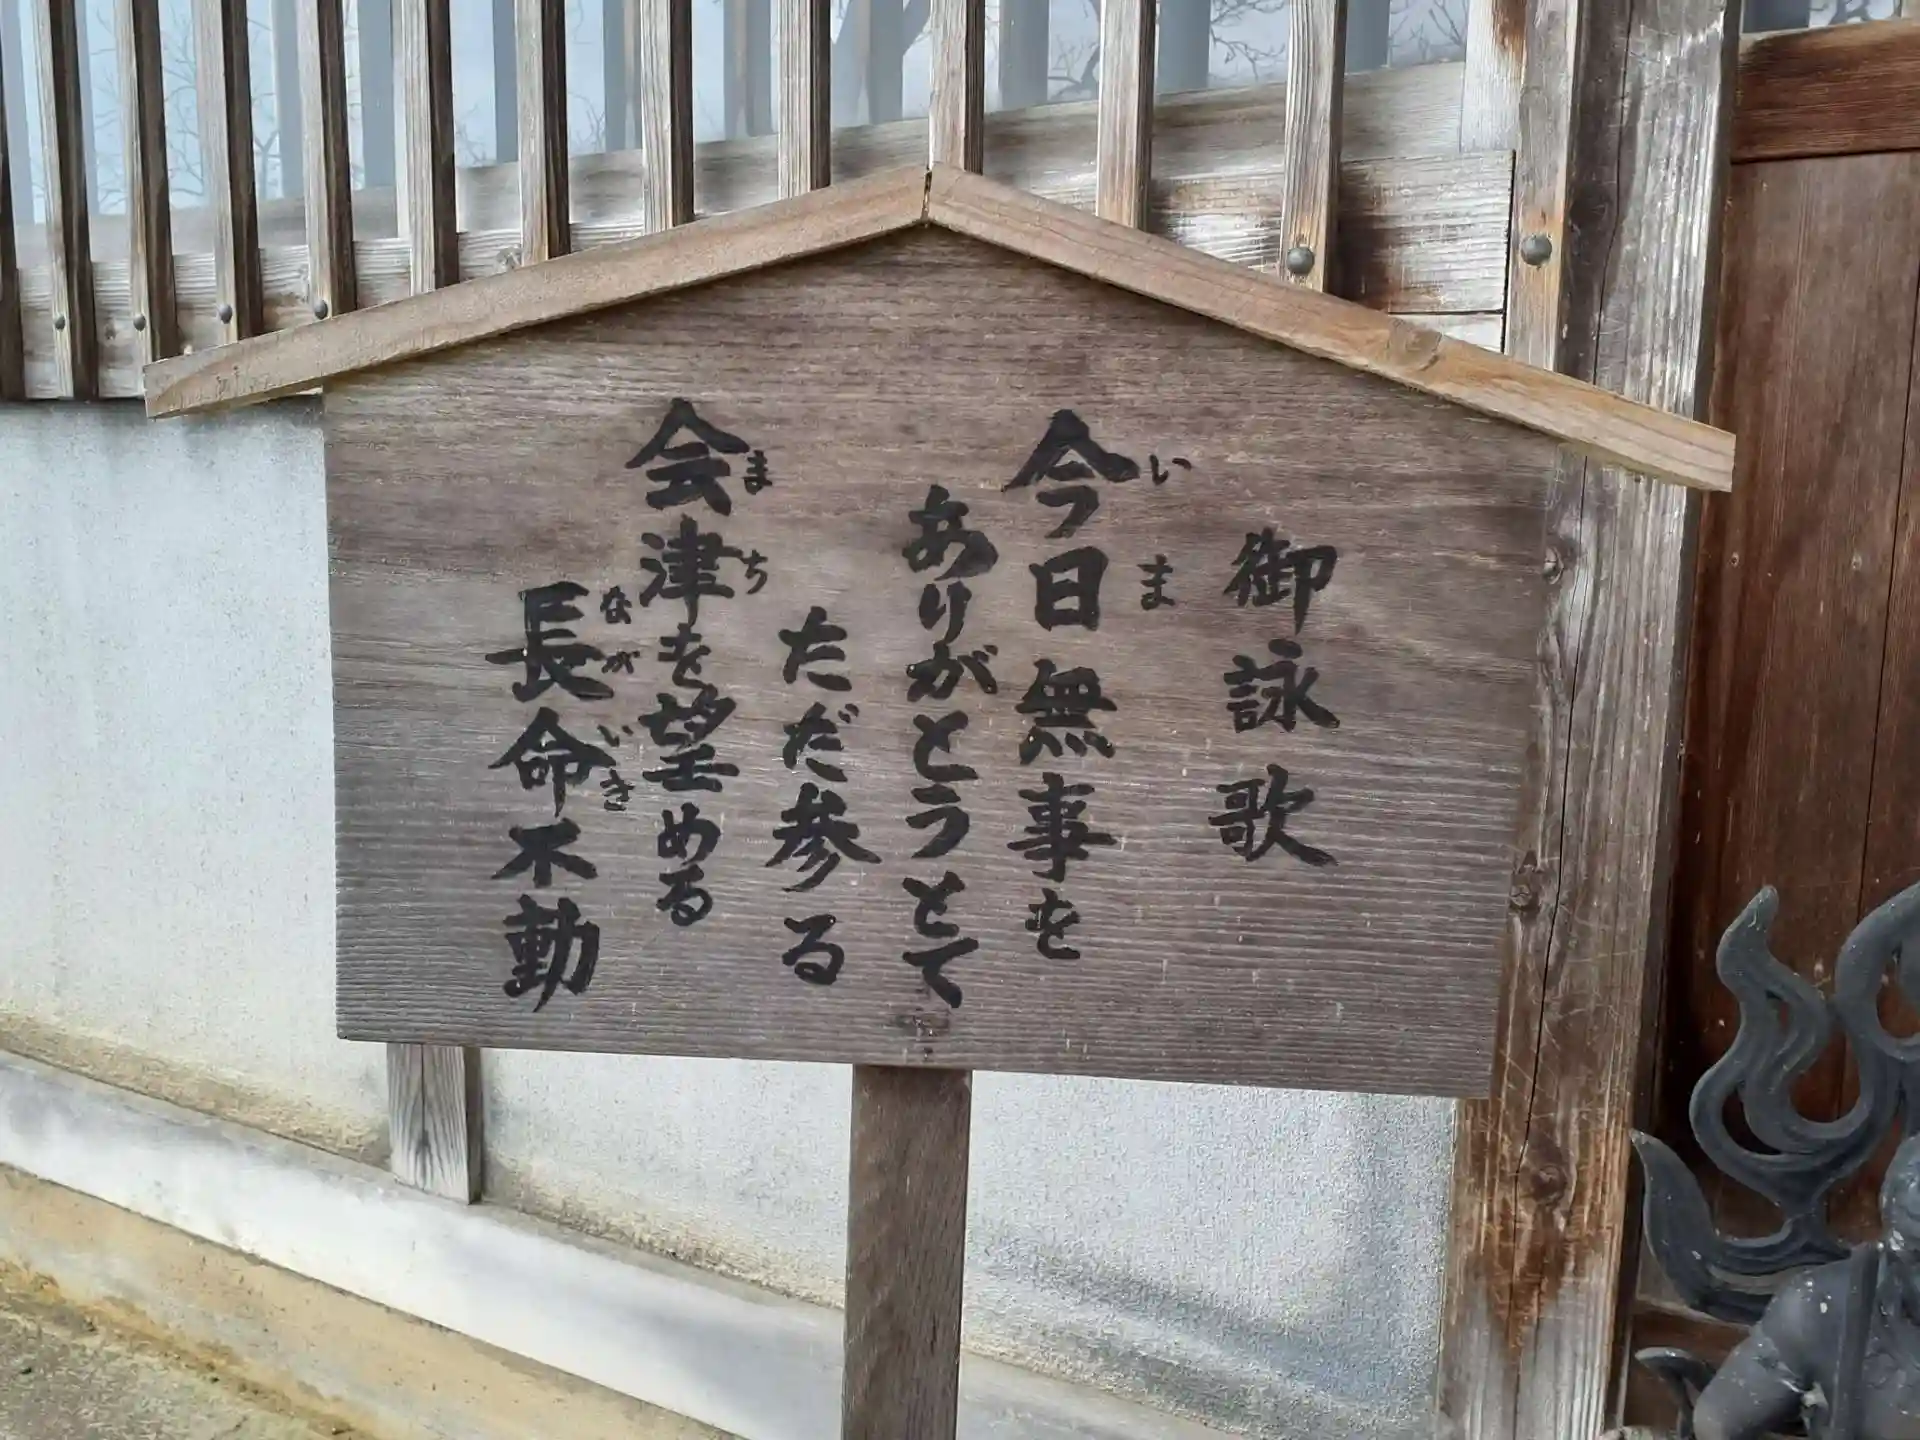 御詠歌
今日無事を
いま
ありがとうとて
ただ参る
会津を望める
まち
長命不動
ながいき